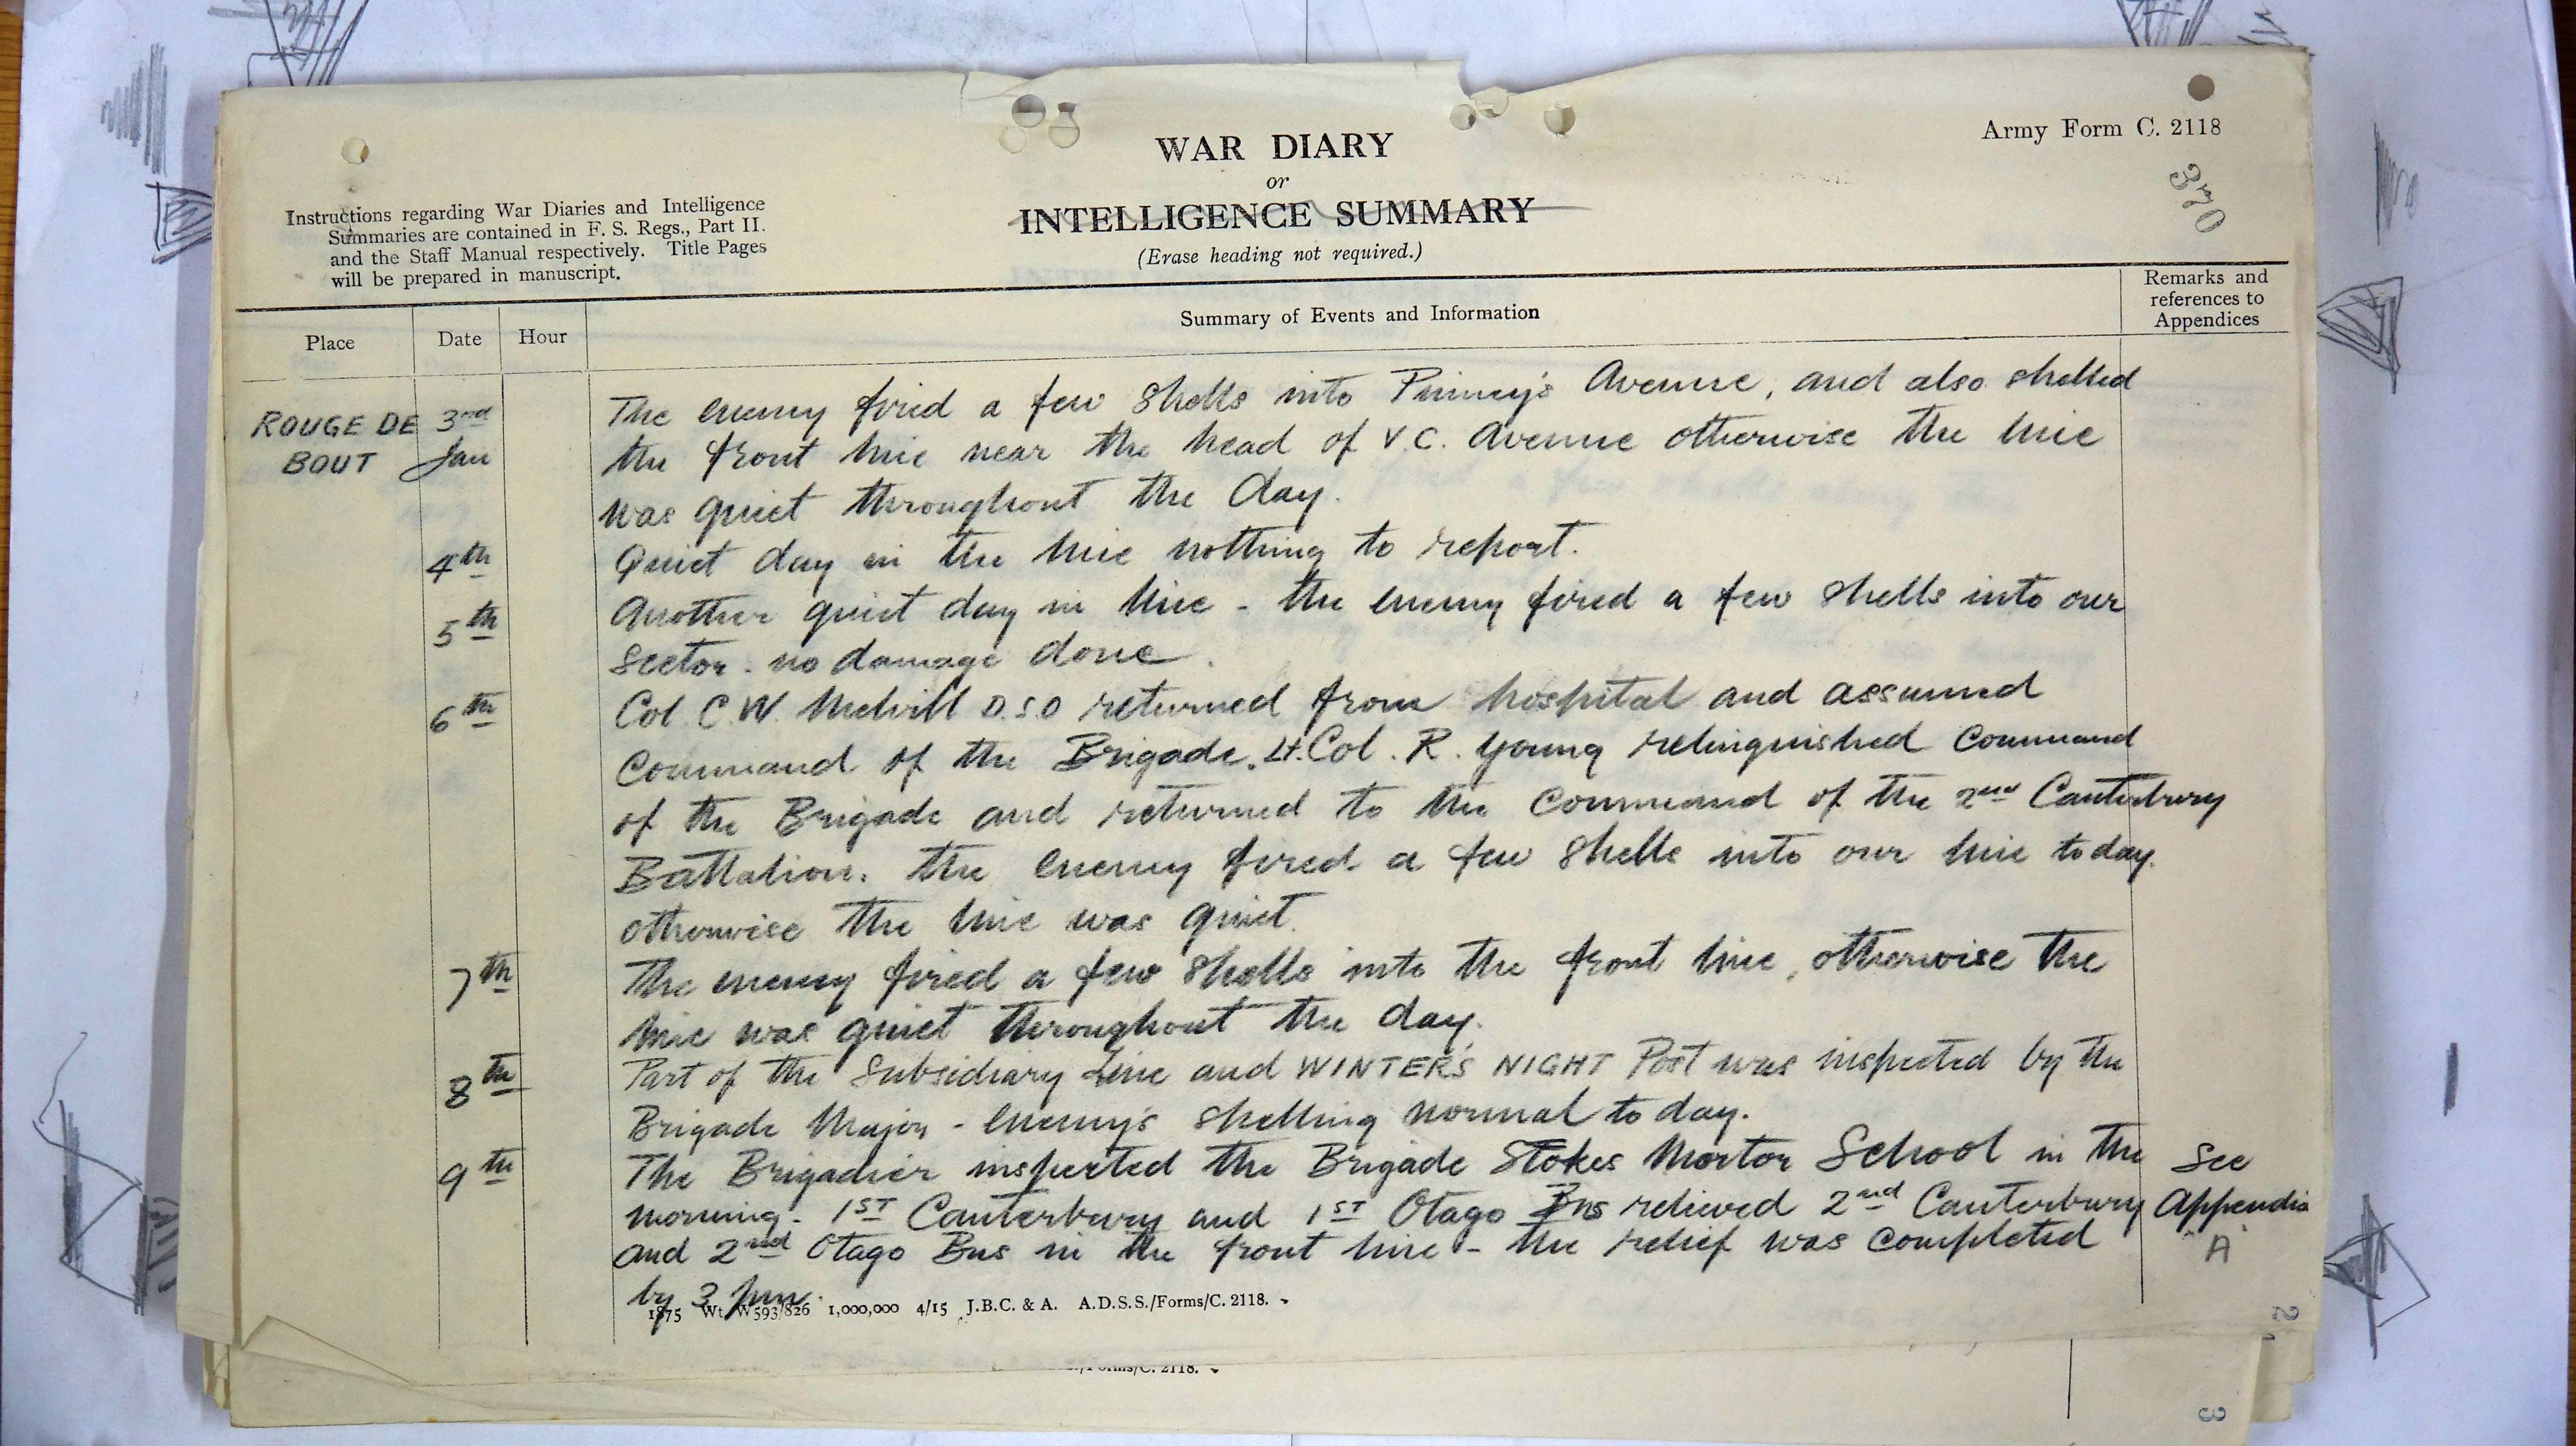 WAR DIARY
or
INTELLIGENCE SUMMARY
(Erase heading not required.)
Army Form C. 2118
370
Instructions regarding War Diaries and Intelligence
Summaries are contained in F. S. Regs., Part II.
and the Staff Manual respectively. Title Pages
will be prepared in manuscript.
Place Date Hour Summary of Events and Information Remarks and
references to
Appendices
ROUGE DE 3rd The enemy fired a few shells into Pinney's Avenue, and also shelled
BOUT Jan the front line near the head of V.C. Avenue otherwise the line
was quiet throughout the day.
4th Quiet day in the line nothing to report.
5th Another quiet day in line - the enemy fired a few shells into our
sector. no damage done.
6th Col. C.W. Melvill D.S.O returned from hospital and assumed
Command of the Brigade. Lt. Col. R. Young relinquished Command
of the Brigade and returned to the Command of the 2nd Canterbury
Battalion. the enemy fired a few shells into our line today.
otherwise the line was quiet.
7th The enemy fired a few shells into the front line, otherwise the
line was quiet throughout the day.
8th Part of the Subsidiary Line and WINTER'S NIGHT Post was inspected by the
Brigade Major - Enemy's shelling normal today.
9th The Brigadier inspected the Brigade Stokes Mortar School in the See
morning. 1ST Canterbury and 1ST Otago Bns relieved 2nd Canterbury Appendix
and 2nd Otago Bns in the front line - the relief was completed "A"
by 3 pm.
1875 Wt. W593/826 1,000,000 4/15 J.B.C. & A. A.D.S.S./Forms/C. 2118.
/Forms/C. 2118.
2
3